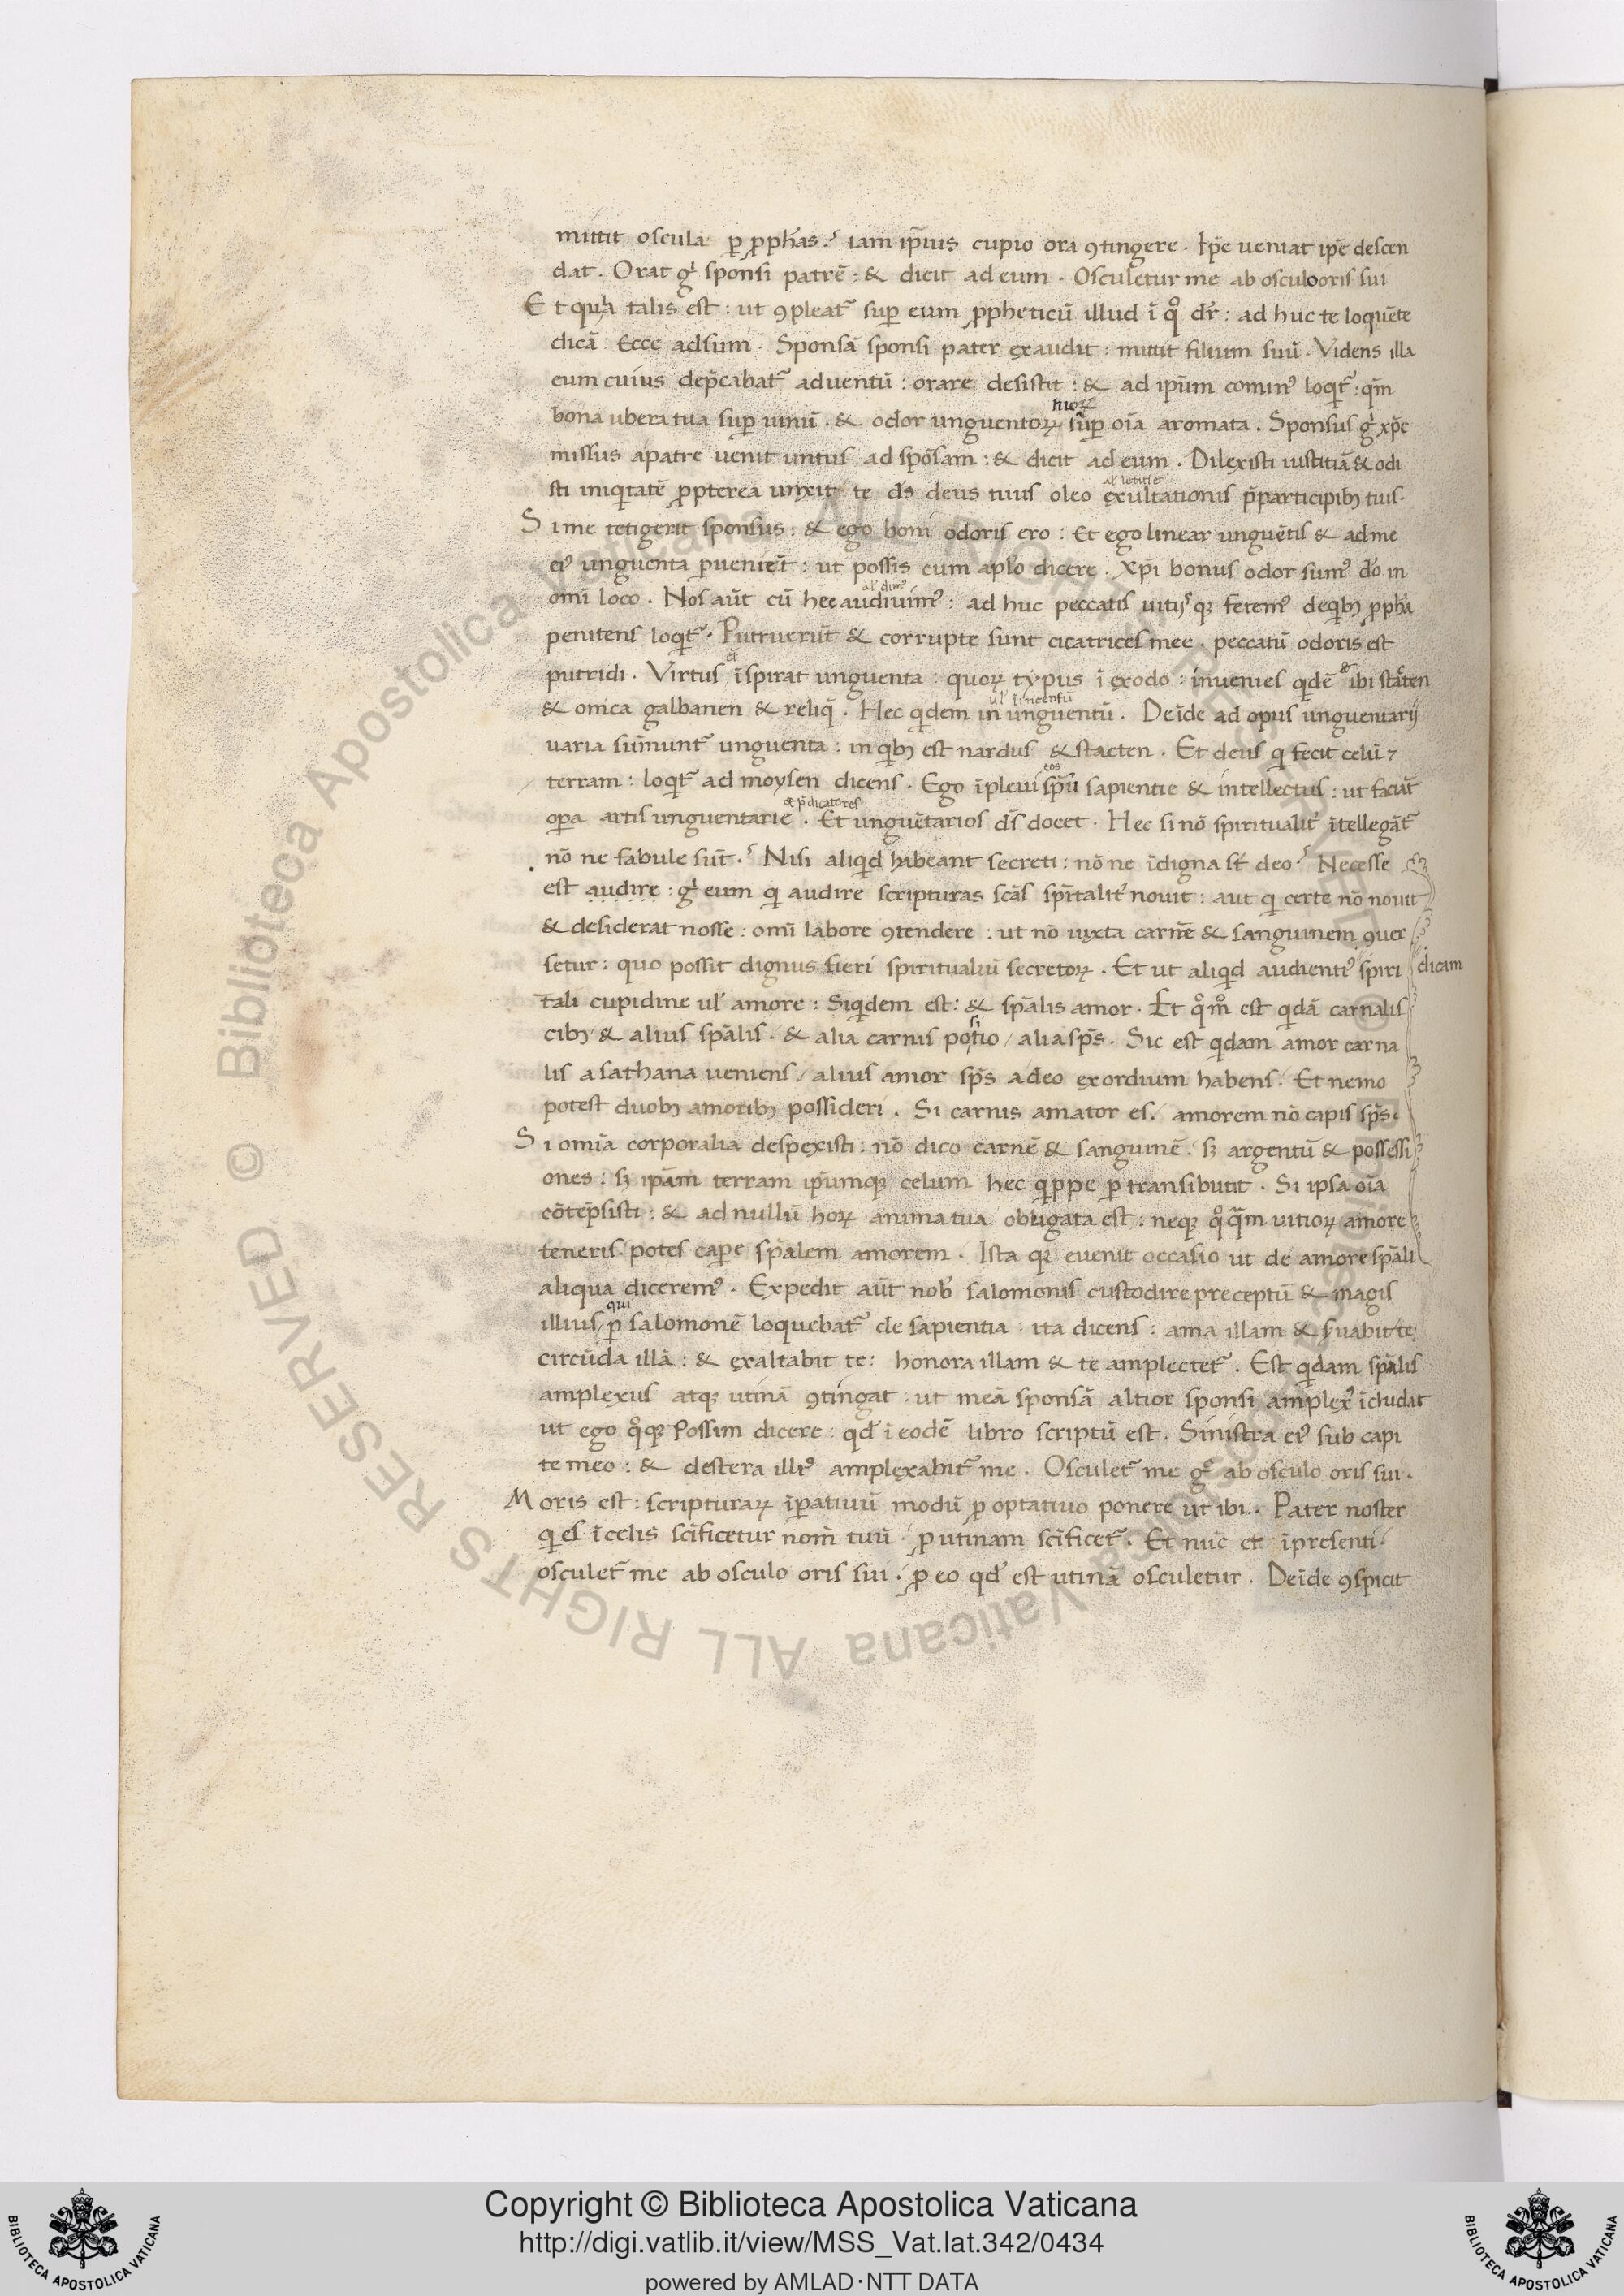 mittit oscula p̱ ꝓph̄as.ˀ iam ip̄ius cupio ora ꝯtingere . Ip̄e ueniat ip̄e descen
dat . Orat gͥ sponsi patrē : & dicit ad eum . Osculetur me ab osculo oris sui
Et quia talis est : ut ꝯpleat᷑ sup̱ eum ꝓpheticū illud ī qͦ dr̄ : ad huc te loquēte
dicā : Ecce adsum . Sponsā sponsi pater exaudit : mittit filium suū . Videns illa
eum cuius dep̄cabat᷑ aduentū : orare desistit : & ad ip̄um cominꝰ loqͥt᷑ : qm̄
tuoꝝ
bona ubera tua sup̱ uinū . & odor unguentoꝝ sup̱ oīa aromata . Sponsus gͥ xp̄e
missus apatre uenit untus ad spōsam : & dicit ad eum . Dilexisti iustitiā & odi
al letitie
sti iniqͥtatē ꝓpterea unxit te ds̄ deus tuus oleo exultationis p̄participibꝫ tuis .
Si me tetigerit sponsus : & ego boni odoris ero : Et ego linear unguētis & ad me
eiꝰ unguenta p̱ueniēt : ut possis cum apl̄o dicere . Xp̄i bonus odor sumꝰ dō in
al' dimꝰ
omī loco . Nos aūt cū hec audiuimꝰ : ad huc peccatis uitijsqꝫ fetemꝰ deqͥbꝫ ꝓph̄a
penitens loqͥt᷑ . Putruerūt & corrupte sunt cicatrices mee . peccatū odoris est
et̄
putridi . Virtus īspirat unguenta : quoꝝ typus ī exodo : inuenies qͥdē & ibi stāten
ul' īincensū
& onica galbanen & reliq̄ . Hec qͥdem in unguentū . Deīde ad opus unguentarij
uaria sūmunt᷑ unguenta : in qͥbꝫ est nardus & stacten . Et deus qͥ fecit celū ⁊
eos
terram : loqͥt᷑ ad moysen dicens . Ego īpleui sp̄ū sapientie & intellectus : ut faciāt
& p̄dicatores
op̱a artis unguentarie . Et unguētarios ds̄ docet . Hec si nō spiritualit᷑ ītellegāt᷑
nō ne fabule sūt .ˀ Nisi aliqͥd habeant secreti : nō ne īdigna st̄ deo ˀ Necesse
est audire : gͥ eum qͥ audire scripturas scās sp̄italit᷑ nouit : aut qͥ certe nō nouit
& desiderat nosse : omī labore ꝯtendere : ut nō iuxta carnē & sanguinem ꝯuer
setur : quo possit dignus fieri spiritualiū secretoꝝ . Et ut aliqͥd audientiꝰ spiri dicam
tali cupidine ul' amore : Siqͥdem est : & sp̄alis amor . Et qͦmͦ est qͥdā carnalis
cibꝰ & alius sp̄alis . & alia carnis potio / alia sp̄s . Sic est qͥdam amor carna
lis a sathana ueniens / alius amor sp̄s adeo exordium habens . Et nemo
potest duobꝫ amoribꝫ possideri . Si carnis amator es / amorem nō capis sp̄s .
Si omīa corporalia despexisti : nō dico carnē & sanguinē . sꝫ argentū & possessi
ones : sꝫ ip̄am terram ip̄umqꝫ celum hec qͥppe p̱transibūt . Si ipsa oīa
cōtēpsisti : & ad nullū hoꝝ anima tua obligata est : neqꝫ qͦq̄m uitioꝝ amore
teneris . potes cap̱e sp̄alem amorem . Ista qꝫ euenit occasio ut de amore sp̄ali
aliqua diceremꝰ . Expedit aūt nob̄ salomonis custodire preceptū & magis
qui
illius / p̱ salomonē loquebat᷑ de sapientia ita dicens : ama illam & suabit te
circūda illā : & exaltabit te : honora illam & te amplectet᷑ . Est qͥdam sp̄alis
amplexus atqꝫ utinā ꝯtingat : ut meā sponsā altior sponsi amplexꝰ īcludat
ut ego qͦqꝫ Possim dicere : qd̄ ī eodē libro scriptū est . Sinistra eiꝰ sub capi
te meo : & destera illiꝰ amplexabit᷑ me . Osculet᷑ me gͥ ab osculo oris sui .
Moris est : scripturaꝝ īp̱atiuū modū ꝓ optatiuo ponere ut ibi . Pater noster
qͥ es ī celis scīficetur nom̄ tuū . ꝓ utinam scīficet᷑ . Et nūc et īpresenti .
osculet᷑ me ab osculo oris sui . ꝓ eo qd̄ est utinā osculetur . Deīde ꝯspicit
Copyright © Biblioteca Apostolica Vaticana
http://digi.vatlib.it/view/MSS_Vat.lat.342/0434
powered by AMLAD·NTT DATA